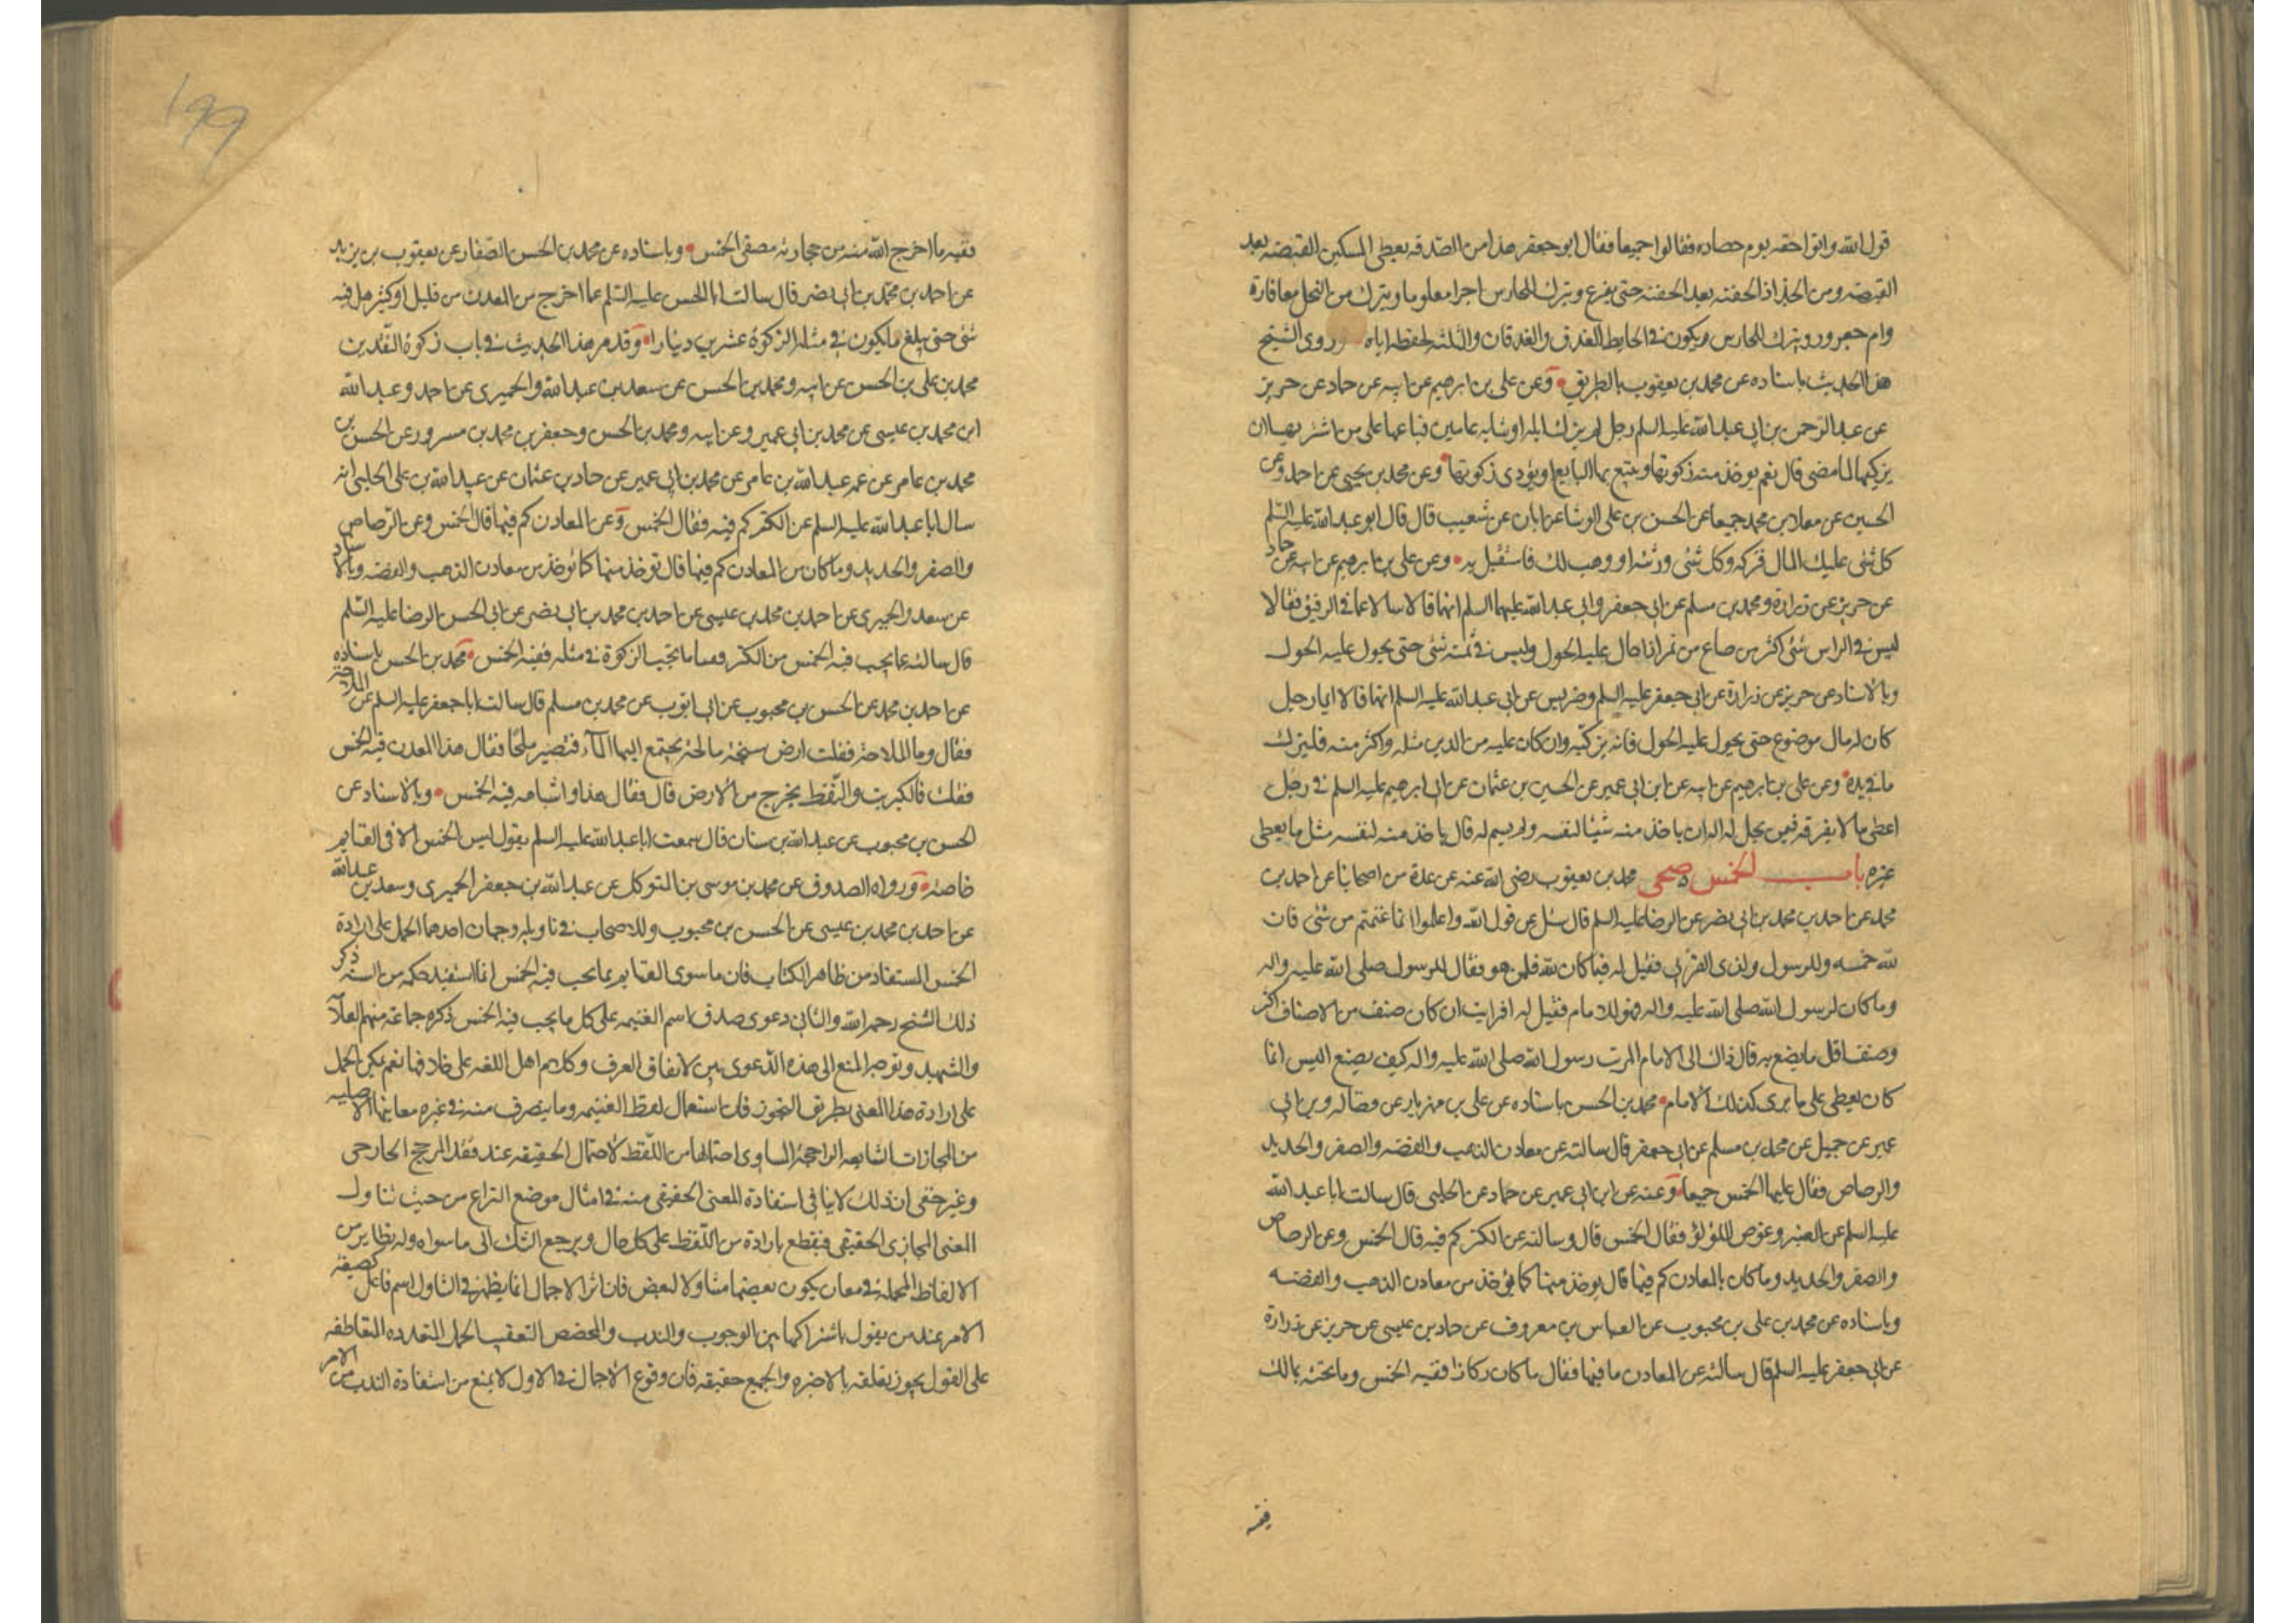 قول الله واتوا حقه يوم حصاده فقالوا جميعا فقال ابو جعفر هذا من الصدقه يعطى المسكين القبضه بعد
القبضه ومن الجذاذ الحفنه بعد الحفنه حتى يفرغ ويترك للحارس اجرا معلوما ويترك من النخل معافارة
وام جعرور ويترك للحارس ويكون فى الحايط العذق والعذقان والثلثه لحفظه اياه وروى الشيخ
هذا الحديث باسناده عن محمد بن يعقوب بالطريق وعن على بن ابرهيم عن ابيه عن حماد عن حريز
عن عبد الرحمن بن ابى عبد الله عليه السلم رجل لم يزك ابله او شاته عامين فباعها على من اشتريها ان
يزكيها لما مضى قال نعم يوخذ منه زكوتها ويتبع بها البايع او يؤدى زكوتها وعن محمد بن يحيى عن احمد وعن
الحسين عن معلى بن محمد جميعا عن الحسن بن على الوشا عن ابان عن شعيب قال قال ابو عبد الله عليه السلم
كل شئ عليك المال فزكه وكل شئ ورثته او وهب لك فاستقبل به وعن على بن ابرهيم عن ابيه عن حماد
عن حريز عن زرارة ومحمد بن مسلم عن ابى جعفر وابى عبد الله عليهما السلم انهما قالا سالا عما فى الرقيق فقالا
ليس فى الراس شئ اكثر من صاع من تمر اذا حال عليه الحول وليس فى ثمنه شئ حتى يحول عليه الحول
وبالاسناد عن حريز عن زرارة عن ابى جعفر عليه السلم وضريس عن ابى عبد الله عليه السلم انهما قالا ايما رجل
كان له مال موضوع حتى يحول عليه الحول فانه يزكيه وان كان عليه من الدين مثله واكثر منه فليزك
ما فى يده وعن على بن ابرهيم عن ابيه عن ابن ابى عمير عن الحسين بن عثمان عن ابى ابرهيم عليه السلم فى رجل
اعطى مالا يفرقه فيمن يحل له اله ان ياخذ منه شيئا لنفسه ولم يسم له قال ياخذ منه لنفسه مثل ما يعطى
غيره باب الخمس صحى محمد بن يعقوب رضى الله عنه عن عدة من اصحابنا عن احمد بن
محمد عن احمد بن محمد بن ابى نصر عن الرضا عليه السلم قال سئل عن قول الله واعلموا انما غنمتم من شئ فان
لله خمسه وللرسول ولذى القربى فقيل له فما كان لله فلمن هو فقال للرسول صلى الله عليه واله
وما كان لرسول الله صلى الله عليه واله فهو للامام فقيل له افرايت ان كان صنف من الاصناف اكثر
وصنف اقل ما يصنع به قال ذاك الى الامام ارايت رسول الله صلى الله عليه واله كيف يصنع اليس انما
كان يعطى على ما يرى كذلك الامام محمد بن الحسن باسناده عن على بن مهزيار عن فضاله وبن ابى
عمير عن جميل عن محمد بن مسلم عن ابى جعفر قال سالته عن معادن الذهب والفضه والصفر والحديد
والرصاص فقال عليها الخمس جميعا وعنه عن ابن ابى عمير عن حماد عن الحلبى قال سالت ابا عبد الله
عليه السلم عن العنبر وغوص اللؤلؤ فقال الخمس قال وسالته عن الكنز كم فيه قال الخمس وعن الرصاص
والصفر والحديد وما كان بالمعادن كم فيها قال يوخذ منها كما يؤخذ من معادن الذهب والفضه
وباسناده عن محمد بن على بن محبوب عن العباس بن معروف عن حماد بن عيسى عن حريز عن زرارة
عن ابى جعفر عليه السلم قال سالته عن المعادن ما فيها فقال ما كان ركازا ففيه الخمس وما عالجته بمالك
ففيه
١٩٩
ففيه ما اخرج الله منه من حجارته مصفى الخمس وباسناده عن محمد بن الحسن الصفار عن يعقوب بن يزيد
عن احمد بن محمد بن ابى نصر قال سالت ابا الحسن عليه السلم عما اخرج من المعدن من قليل او كثير هل فيه
شئ حتى يبلغ ما يكون فى مثله الزكوة عشرين دينارا وقد مر هذا الحديث فى باب زكوة النقدين
محمد بن على بن الحسن عن ابيه ومحمد بن الحسن عن سعد بن عبد الله والحميرى عن احمد وعبد الله
ابن محمد بن عيسى عن محمد بن ابى عمير وعن ابيه ومحمد بن الحسن وجعفر بن محمد بن مسرور عن الحسن بن
محمد بن عامر عن عمه عبد الله بن عامر عن محمد بن ابى عمير عن حماد بن عثمان عن عبيد الله بن على الحلبى انه
سال ابا عبد الله عليه السلم عن الكنز كم فيه فقال الخمس وعن المعادن كم فيها قال الخمس وعن الرصاص
والصفر والحديد وما كان من المعادن كم فيها قال توخذ منها كما تؤخذ من معادن الذهب والفضه وبالاسناد
عن سعد والحميرى عن احمد بن محمد بن عيسى عن احمد بن محمد بن ابى نصر عن ابى الحسن الرضا عليه السلم
قال سالته عما يجب فيه الخمس من الكنز فقال ما تجب الزكوة فى مثله ففيه الخمس محمد بن الحسن باسناده
عن احمد بن محمد عن الحسن بن محبوب عن ابى ايوب عن محمد بن مسلم قال سالت ابا جعفر عليه السلم عن الملاحة
فقال وما الملاحة فقلت ارض سبخة مالحة يجتمع اليها الماء فتصير ملحا فقال هذا المعدن فيه الخمس
فقلت فالكبريت والنفط يخرج من الارض قال فقال هذا واشباهه فيه الخمس وبالاسناد عن
الحسن بن محبوب عن عبد الله بن سنان قال سمعت ابا عبد الله عليه السلم يقول ليس الخمس الا فى الغنايم
خاصة ورواه الصدوق عن محمد بن موسى بن المتوكل عن عبد الله بن جعفر الحميرى وسعد بن عبد الله
عن احمد بن محمد بن عيسى عن الحسن بن محبوب وللاصحاب فى تاويله وجهان احدهما الحمل على ارادة
الخمس المستفاد من ظاهر الكتاب فان ما سوى الغنايم مما يجب فيه الخمس انما استفيد حكمه من السنه ذكر
ذلك الشيخ رحمه الله والثانى دعوى صدق اسم الغنيمه على كل ما يجب فيه الخمس ذكره جماعة منهم العلامة
والشهيد وتوجه المنع الى هذه الدعوى بين لاتفاق العرف وكلام اهل اللغه على خلافها نعم يمكن الحمل
على ارادة هذا المعنى بطريق التجوز فان استعمال لفظ الغنيمه وما يتصرف منه فى غير معانيها الاصليه
من المجازات الشايعه الراجحة المساوى احتمالها من اللفظ لاحتمال الحقيقه عند فقد المرجح الخارجى
وغير خفى ان ذلك لا ينافى استفادة المعنى الحقيقى منه فى امثال موضع النزاع من حيث تناول
المعنى المجازى الحقيقى فيقطع بارادة من اللفظ على كل حال ويرجع الشك الى ما سواه وله نظاير من
الالفاظ المجملة فى معان يكون بعضها متناولا لبعض فان اثر الاجمال انما يظهر فى التناول اسم فاعل كصيغة
الامر عند من يقول باشتراكها بين الوجوب والندب والمخصص المتعقب للجمل المتعدده المتعاطفه
على القول بجوز تعلقه بالاخيره والجميع حقيقه فان وقوع الاجمال فى الاول لا يمنع من استفادة الندب من الامر